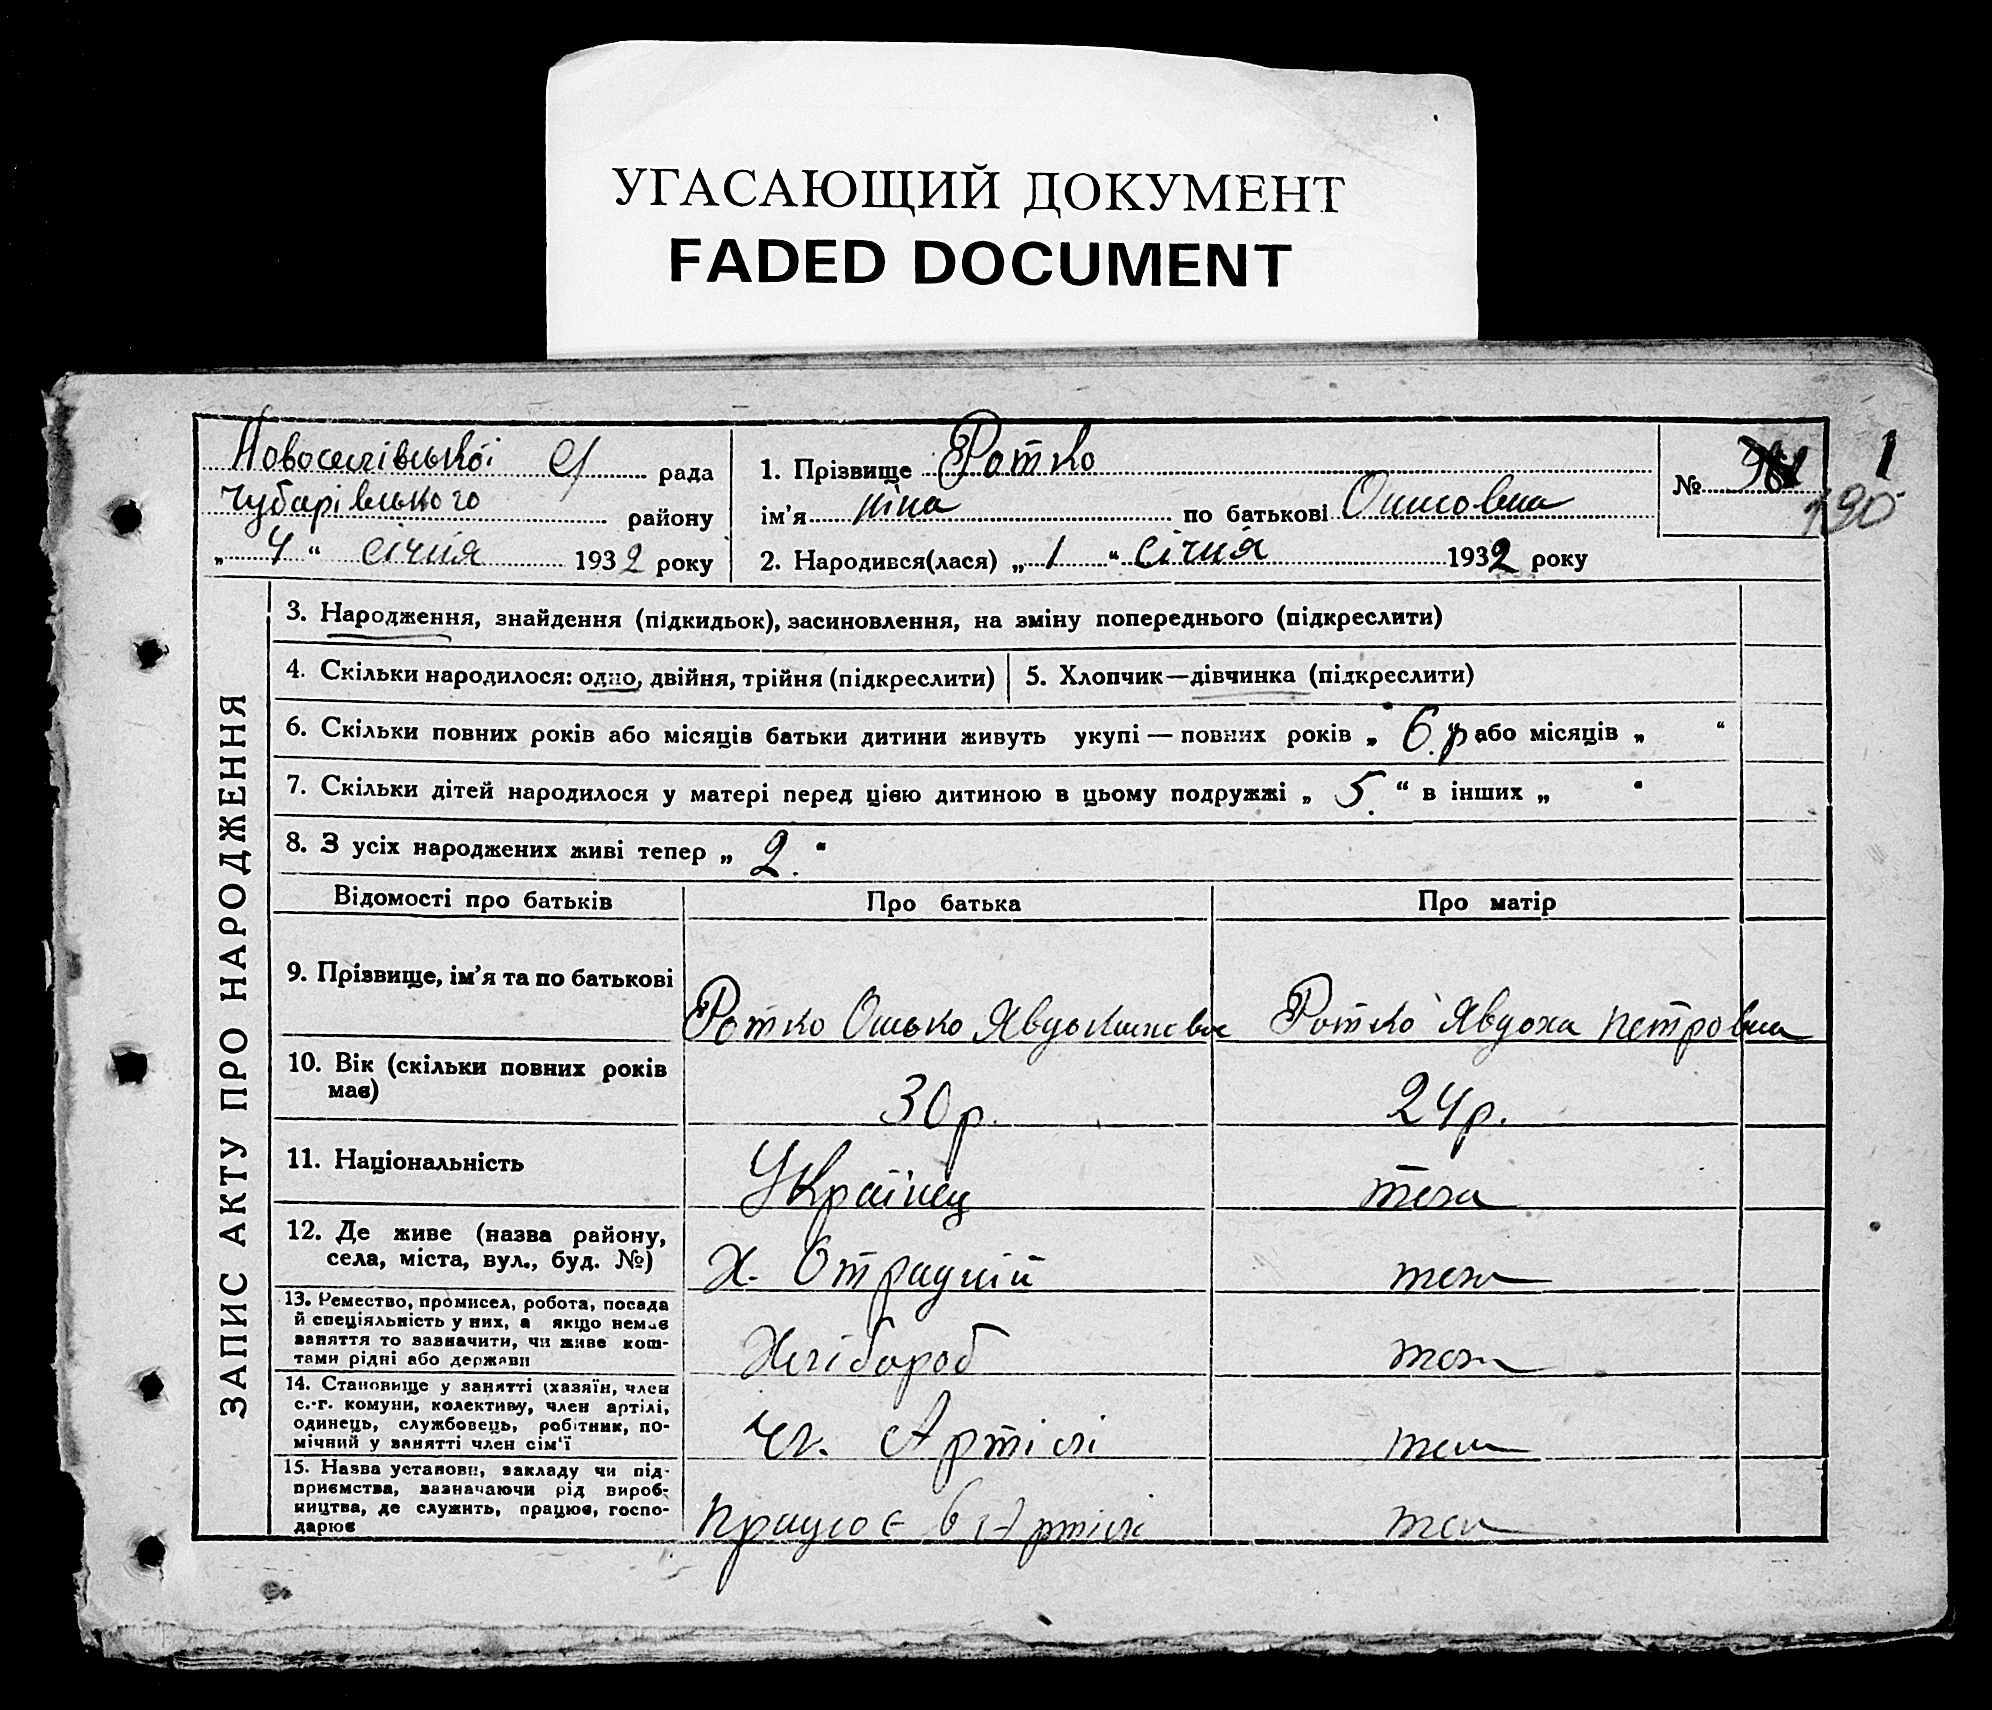 УГАСАЮЩИЙ ДОКУМЕНТ
FADED DOCUMENT
Новоселівської с/ рада
Чубарівського району
„ 4 “ січня 1932 року
1. Прізвище Ротко
ім'я ніна по батькові
2. Народився(лася) „ 1 “ січня 1932 року
№ 1
190
ЗАПИС АКТУ ПРО НАРОДЖЕННЯ
3. Народження, знайдення (підкидьок), засиновлення, на зміну попереднього (підкреслити)
4. Скільки народилося: одно, двійня, трійня (підкреслити)
5. Хлопчик—дівчинка (підкреслити)
6. Скільки повних років або місяців батьки дитини живуть укупі — повних років „ 6 р “ або місяців „ “
7. Скільки дітей народилося у матері перед цією дитиною в цьому подружжі „ 5. “ в інших „ “
8. З усіх народжених живі тепер „ 2. “
Відомості про батьків Про батька Про матір
9. Прізвище, ім'я та по батькові
Ротко Ротко Явдоха петровна
10. Вік (скільки повних років
має)
30 р. 24 р.
11. Національність
Українец тежа
12. Де живе (назва району,
села, міста, вул., буд. №)
Х. Отрадній теж
13. Ремество, промисел, робота, посада
й спеціяльність у них, а якщо немає
заняття то зазначити, чи живе кош-
тами рідні або держави
Хлібороб теж
14. Становище у занятті (хазяїн, член
с.-г. комуни, колективу, член артілі,
одинець, службовець, робітник, по-
мічний у занятті член сім'ї
Чл. Артілі теж
15. Назва установи, закладу чи під-
приємства, зазначаючи рід вироб-
ництва, де служить, працює, госпо-
дарює
працює в Артілі теж